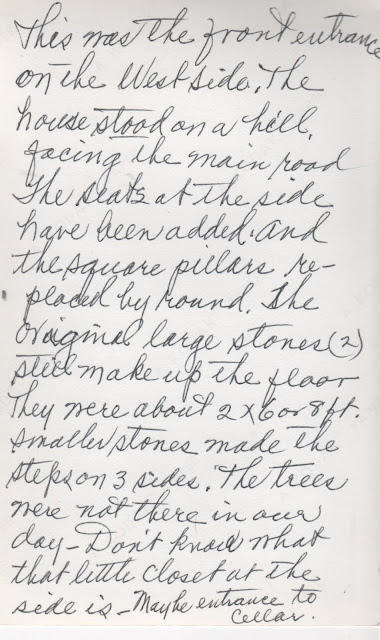 This was the front entrance
on the West side. The
house stood on a hill,
facing the main road
The seats at the side
have been added. And
the square pillars re-
placed by round. The
original large stones (2)
still make up the floor
They were about 2 x 6 or 8 ft.
Smaller stones made the
steps on 3 sides. The trees
were not there in our
day - Don't know what
that little closet at the
side is - Maybe entrance to
Cellar.